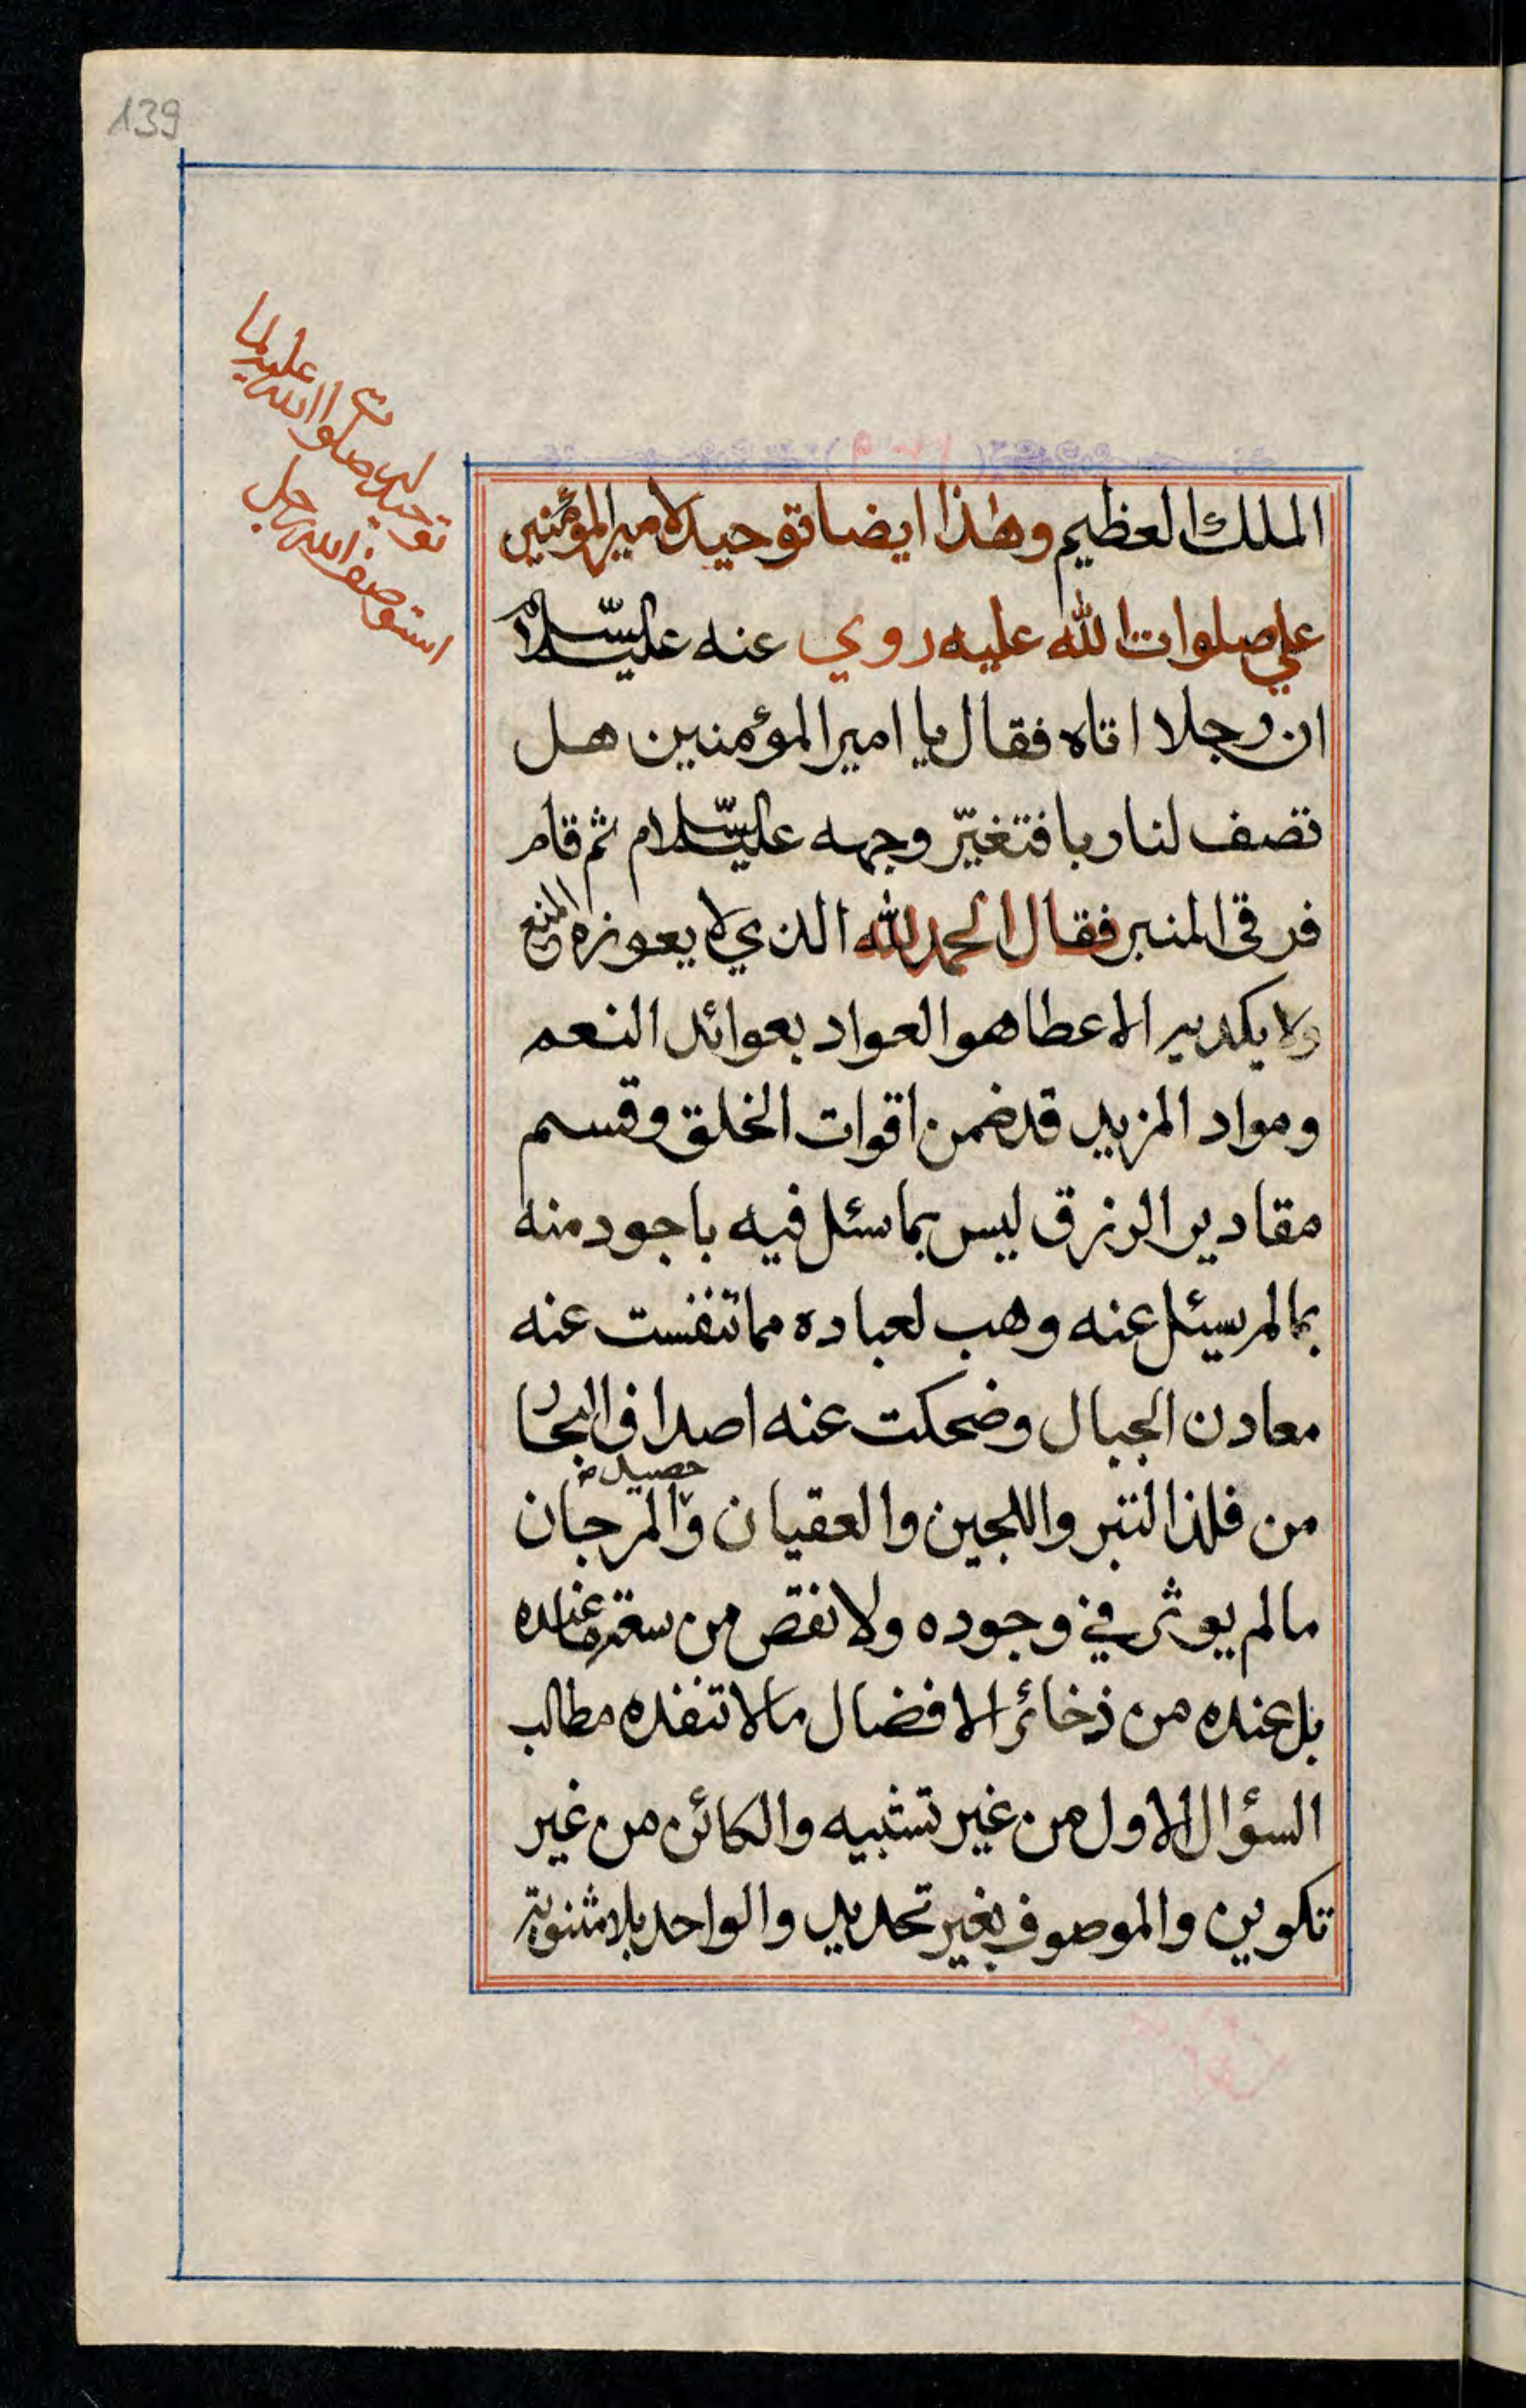 139
توحيد له صلوات الله عليه لما
استوصف الله رجل
الملك العظيم وهذا ايضا توحيد لامير المؤمنين
علي صلوات الله عليه روي عنه عليه السّلام
ان رجلا اتاه فقال يا امير المؤمنين هل
تصف لنا ربا فتغيّر وجهه عليه السّلام ثم قام
فرقى المنبر فقال الحمد لله الذي لا يعوزه المنع
ولا يكديه الاعطا هو العواد بعوائد النعم
ومواد المزيد قد ضمن اقوات الخلق وقسم
مقادير الرزق ليس بما سئل فيه باجود منه
بما لم يسئل عنه وهب لعباده مما تنفست عنه
معادن الجبال وضحكت عنه اصداف البحار
حصيد
من فلذ التبر واللجين والعقيان والمرجان
ما لم يوثر في وجوده ولا نقص من سعة ما عنده
بل عنده من ذخائر الافضال ما لا تنفده مطالب
السؤال الاول من غير تشبيه والكائن من غير
تكوين والموصوف بغير تحديد والواحد بلا مثنوية